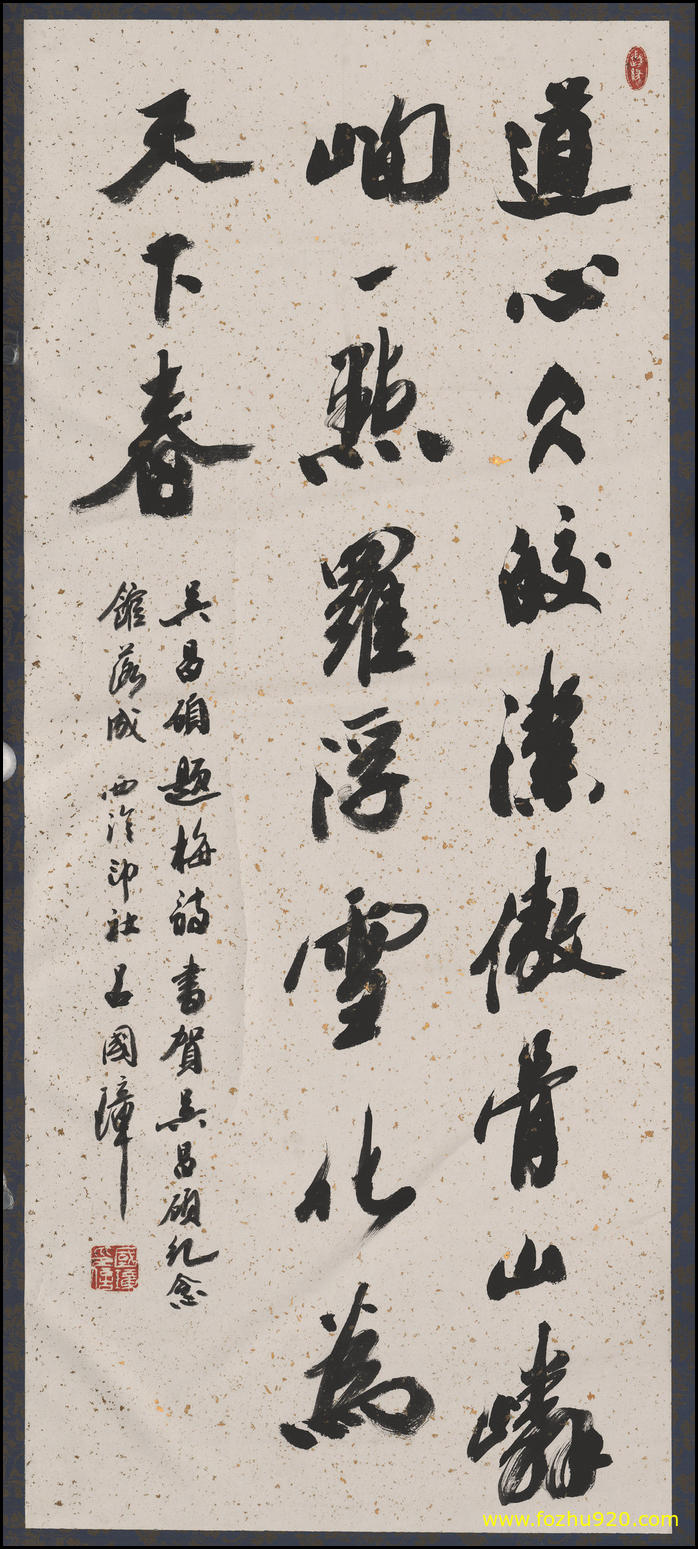 道心久皎潔傲骨山嶙
峋一點羅浮雪化為
天下春
吴昌碩题梅詩書賀吴昌碩纪念
館落成 西泠印社吕國璋
www.fozhu920.com